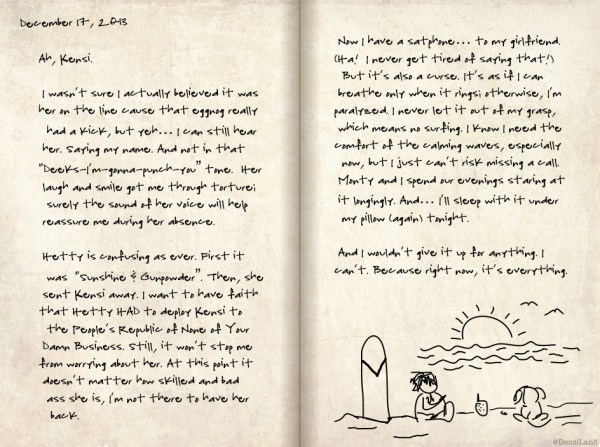 December 17, 2013
Ah, Kensi.
I wasn't sure I actually believed it was
her on the line cause that eggnog really
had a kick, but yeh... I can still hear
her. Saying my name. And not in that
"Deeks-I'm-gonna-punch-you" tone. Her
laugh and smile got me through torture;
surely the sound of her voice will help
reassure me during her absence.
Hetty is confusing as ever. First it
was "Sunshine & Gunpowder". Then, she
sent Kensi away. I want to have faith
that Hetty HAD to deploy Kensi to
the People's Republic of None of Your
Damn Business. Still, it won't stop me
from worrying about her. At this point it
doesn't matter how skilled and bad
ass she is, I'm not there to have her
back.
Now I have a satphone... to my girlfriend.
(Ha! I never get tired of saying that!)
But it's also a curse. It's as if I can
breathe only when it rings; otherwise, I'm
paralyzed. I never let it out of my grasp,
which means no surfing. I know I need the
comfort of the calming waves, especially
now, but I just can't risk missing a call.
Monty and I spend our evenings staring at
it longingly. And... I'll sleep with it under
my pillow (again) tonight.
And I wouldn't give it up for anything. I
can't. Because right now, it's everything.
@DensiLand